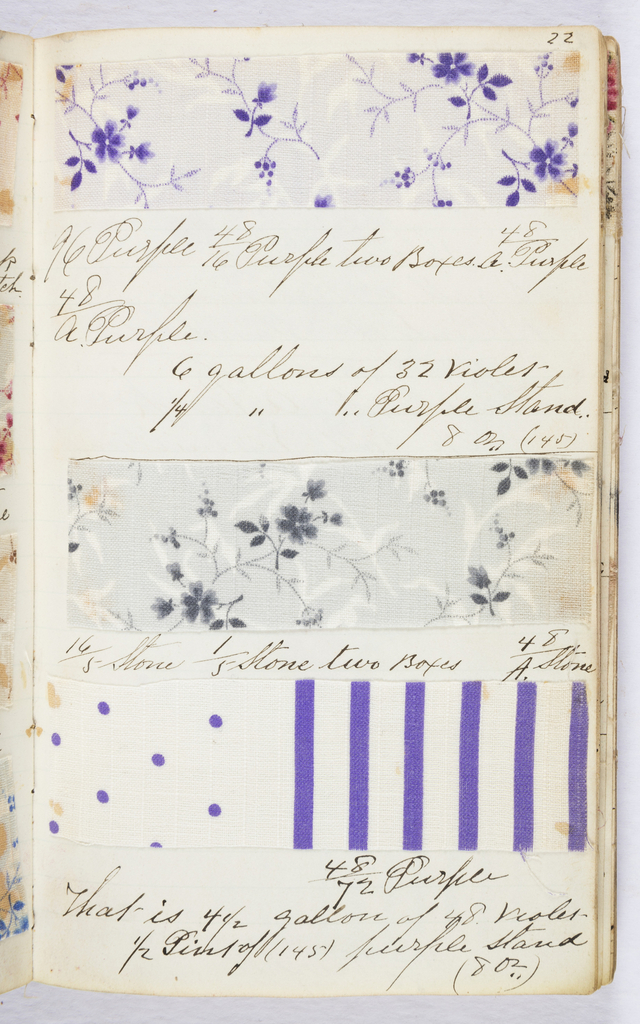 22
96 Purple 48/16 Purple two Boxes. 48/A. Purple
48/A. Purple.
6 gallons of 32 Violet
1/4 " " Purple Stand.
8 Oz (145)
16/5 Stone 1/5 Stone two Boxes 48/A. Stone
48/72 Purple
That is 4 1/2 gallon of 48 Violet
1/2 Pint of (145) purple Stand
(8 Oz)